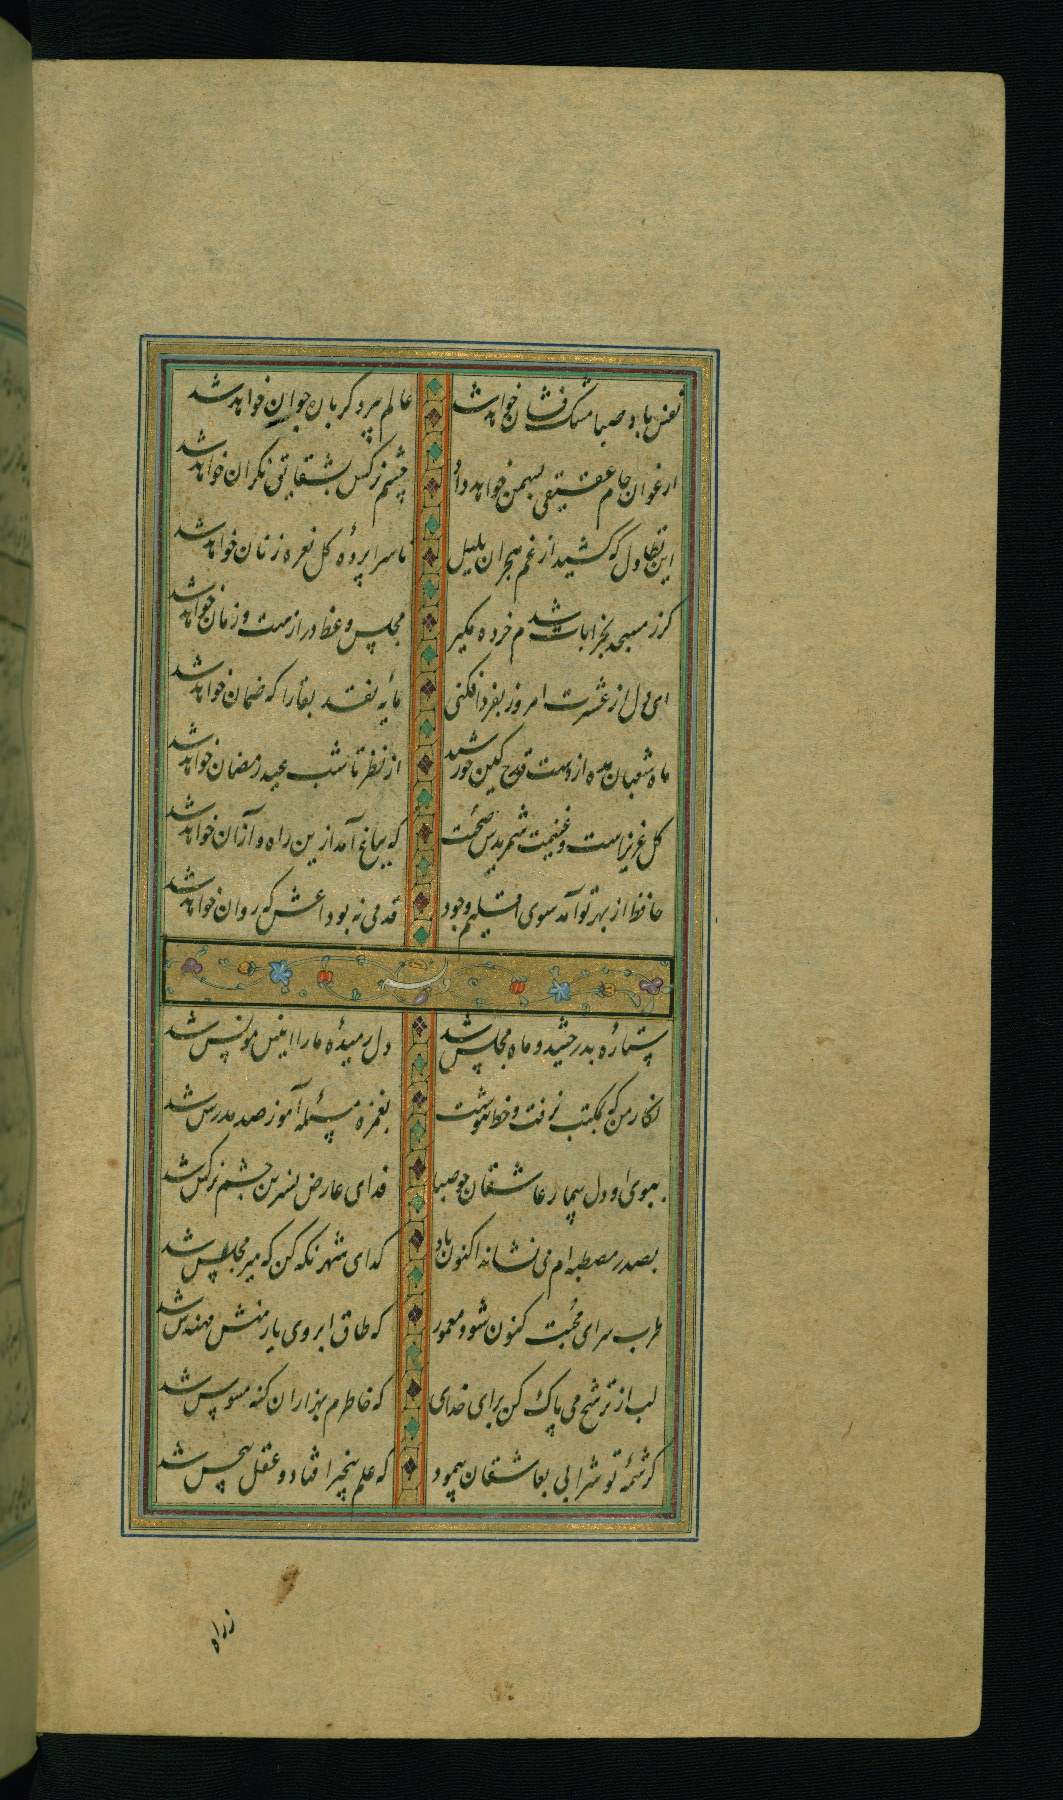 نفس باد صبا مشک فشان خواهد شد عالم پیر دگر باره جوان خواهد شد
ارغوان جام عقیقی بسمن خواهد داد چشم نرکس بشقایق نکران خواهد شد
این تطاول که کشید از غم هجران بلبل تا سراپرده کل نعره زنان خواهد شد
کر ز مسجد بخرابات شدم خرده مکیر مجلس وعظ درازست و زمان خواهد شد
ای دل از عشرت امروز بفردا فکنی مایه نقد بقا را که ضمان خواهد شد
ماه شعبان مده از دست قدح کین خورشید از نظر تا شب عید رمضان خواهد شد
کل عزیز است و غنیمت شمریدش صحبت که بباغ آمد ازین راه و از آن خواهد شد
حافظ از بهر تو آمد سوی اقلیم وجود قدمی نه بوداعش که روان خواهد شد
ستاره بدرخشید و ماه مجلس شد دل رمیده ما را انیس و مونس شد
نکار من که بمکتب نرفت و خط ننوشت بغمزه مسئله آموز صد مدرس شد
ببوی او دل بیمار عاشقان چو صبا فدای عارض نسرین و چشم نرکس شد
بصدر مصطبه ام می نشاند اکنون یار کدای شهر نکه کن که میر مجلس شد
طرب سرای محبت کنون شود معمور که طاق ابروی یار منش مهندس شد
لب از ترشح می پاک کن برای خدای که خاطرم بهزاران کنه موسوس شد
کرشمه تو شرابی بعاشقان پیمود که علم بیخبر افتاد و عقل بیحس شد
زراه